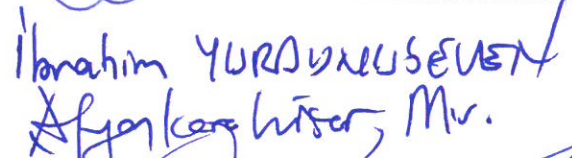 İbrahim YURDUNUSEVEN
Afyonkarahisar, Mv.